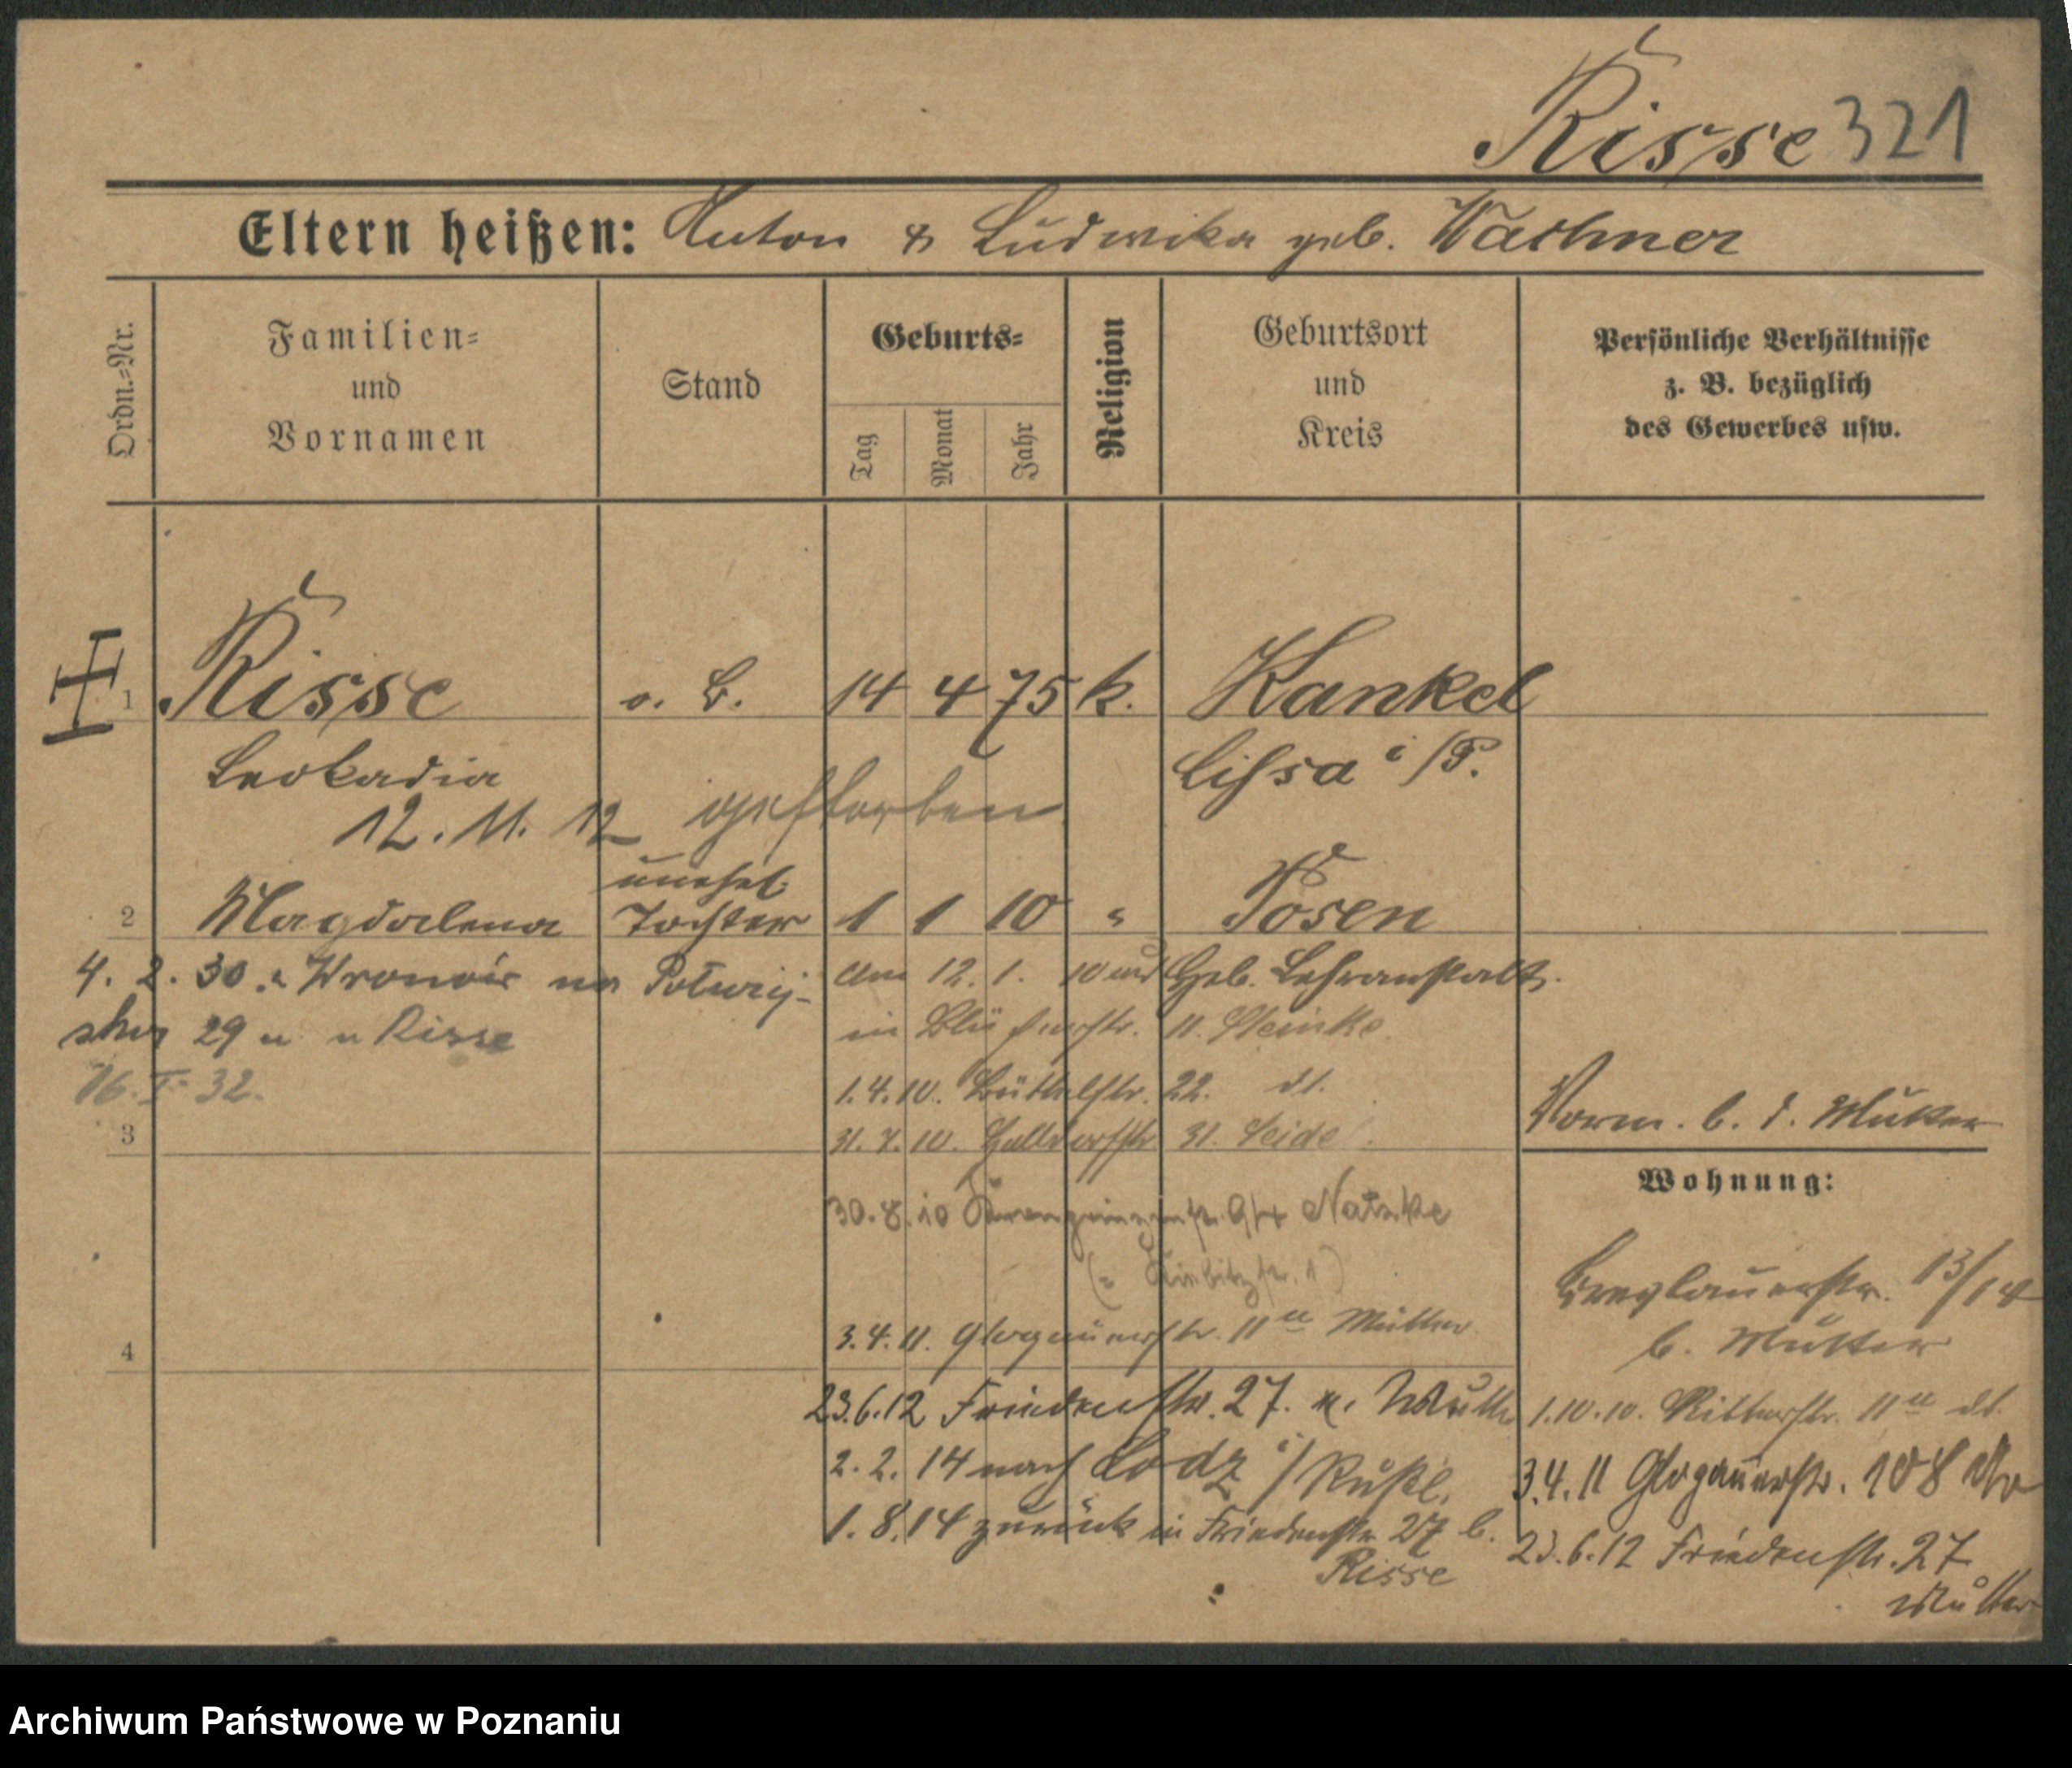 Risse 321
Eltern heißen: Anton & Ludwika geb. Wachner
Ordn.=Nr.
Familien=
und
Vornamen
Stand
Geburts=
Tag
Monat
Jahr
Religion
Geburtsort
und
Kreis
Persönliche Verhältnisse
z. B. bezüglich
des Gewerbes usw.
1 Risse o. B. 14 4 75 k. Kankel
Leokadia Lissa i/P.
12. 11. 12 gestorben
unehel.
2 Magdalena Tochter 1 1 10 " Posen
4. 2. 30. z Wronek na Półwiej-
ską 29 u Risse
16. I. 32.
am 12. 1. 10 aus Geb. Lehranstalt.
in Blücherstr. 11. Steinke.
1.4.10. 22. dt.
31. 7. 10. 31. Seidel.
30. 8. 10 Kronprinzenstr. Natzke
3.4.11. Glogauerstr. 11 Mutter
23.6.12 Friedenstr. 27. Mutter
2. 2. 14 nach Lodz i/Rußl.
1. 8. 14 zurück in Friedenstr. 27 b.
Risse
3
4
Vorm. b. d. Mutter
Wohnung:
Breslauerstr. 13/14
b. Mutter
1.10.10. Ritterstr. 11 dt.
3.4.11 Glogauerstr. 108
23.6.12 Friedenstr. 27
Mutter
Archiwum Państwowe w Poznaniu